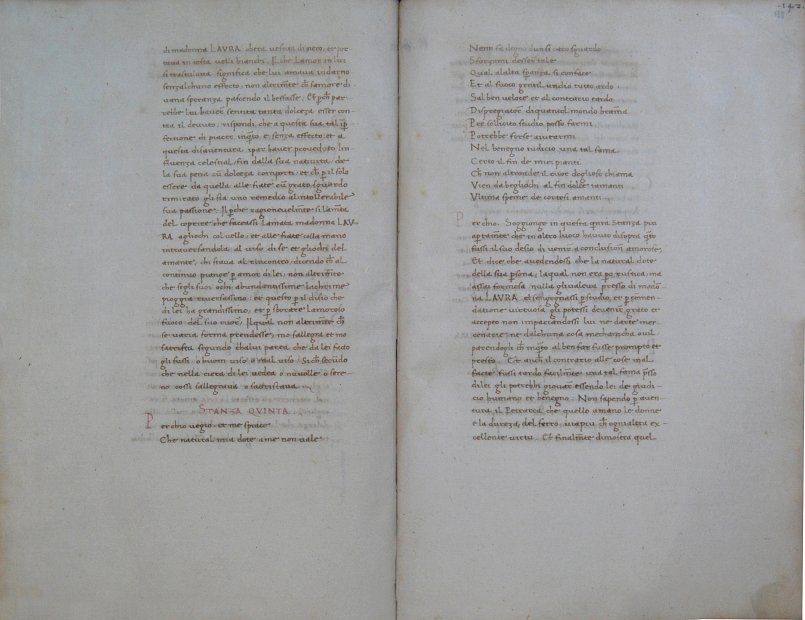 di madonna LAVRA ch'era vestita di nero, et por
tava in testa velli bianchi. Il che Lamor in lui
si trastulava significa che lui amava indarno
senza alchuno effecto, non altrimēte ch̄ samore di
vana speranza pascendo il beffasse. Et perch̄ par
rebbe lui haver sentita tanta dolceza esser con
tra il devuto, rispondi, che a questa sua tal
di piacer e senza effecto, et a
questa disaventura, par haver proveduto In
fluenza celestial, fin dalla sua natività, che
la sua pena cū dolceza comporti, et ch̄ p il solo
essere da quella alle fiate cū grato sguardo
rimirato gli sia uno remedio al intollerabile
sua passione. Il perche ragionevelmēte si lamēta
del coprire che faceasi Lamata madonna LAV-
RA agliochi col vello, et alle fiate colla mano
intraversandola al viso di se et gliochi del
amante, chi stava al rincontro, dicendo ch̄ al
continuo piange p amor di lei, non altrimēte
che se gli suoi ochi abundantissime lachrime
pioggia riversassino, et questo p il disio che
di lei ha grandissimo, et p sforare Lamoroso
fuoco del suo cuor, Il qual non altrimēte ch̄
se varia forma prendesse, mo sallegra et mo
satrista segundo ch'alui parea che da lei fado
gli fussi o buon viso o real viso. Sich̄ secūdo
che nella ciera di lei vedea o nuvolle o sere-
no cossi sallegrava o sattristava
STANZA QVINTA
Per chio vegio, et me spiace
Che natural mia dote a me non vale
.142.
Ne mi fa degno dun si caro sguardo
Sforzomi desser tale
Qual alalta spanza si conface
Et al fuoco gentil undio tutto ardo
Sal ben veloce et al contrario tardo
Dispregiator di quantol mondo brama
Per solicito studio posso farmi
Potrebbe forse aiutarmi
Nel benegno iudicio una tal fama
Certo il fin de miei pianti
Ch̄ non altronde il cuor doglioso chiama
Vien da begliochi al fin dolce tremanti
Vltima speme de cortesi amanti
Per chio. Soggiunge in questa qnta Stanza piu
aptamēte che in altro luoco havuto disopra qto
fussi il suo desio di venir a conclusion amorose,
Et dice che avedendossi che la natural dote
della sua psona, laqual non era po rustica, ma
assai formosa nulla glivaleva presso di mado
na LAVRA, et sempegnassi p studio, et p emen-
datione virtuosa gli potessi devenir grato et
accepto non impaciandossi lui ne darte mer
cenarie, ne dalchuna cosa mechanicha, o vil
parendogli ch̄ al ben far fusse prompto et
presto. Et anch̄ il contrario alle cose mal
facte fussi tardo facilmēte una tal fama psso
di lei gli potrebbi giovar essendo lei de giudi-
cio humano et benegno. Non sapendo p aven
tura il Petrarca che quello amano le donne
e la dureza, del ferro, via piu ch̄ ognialtra ex-
cellente virtu. Et finalmēte dimostra quel